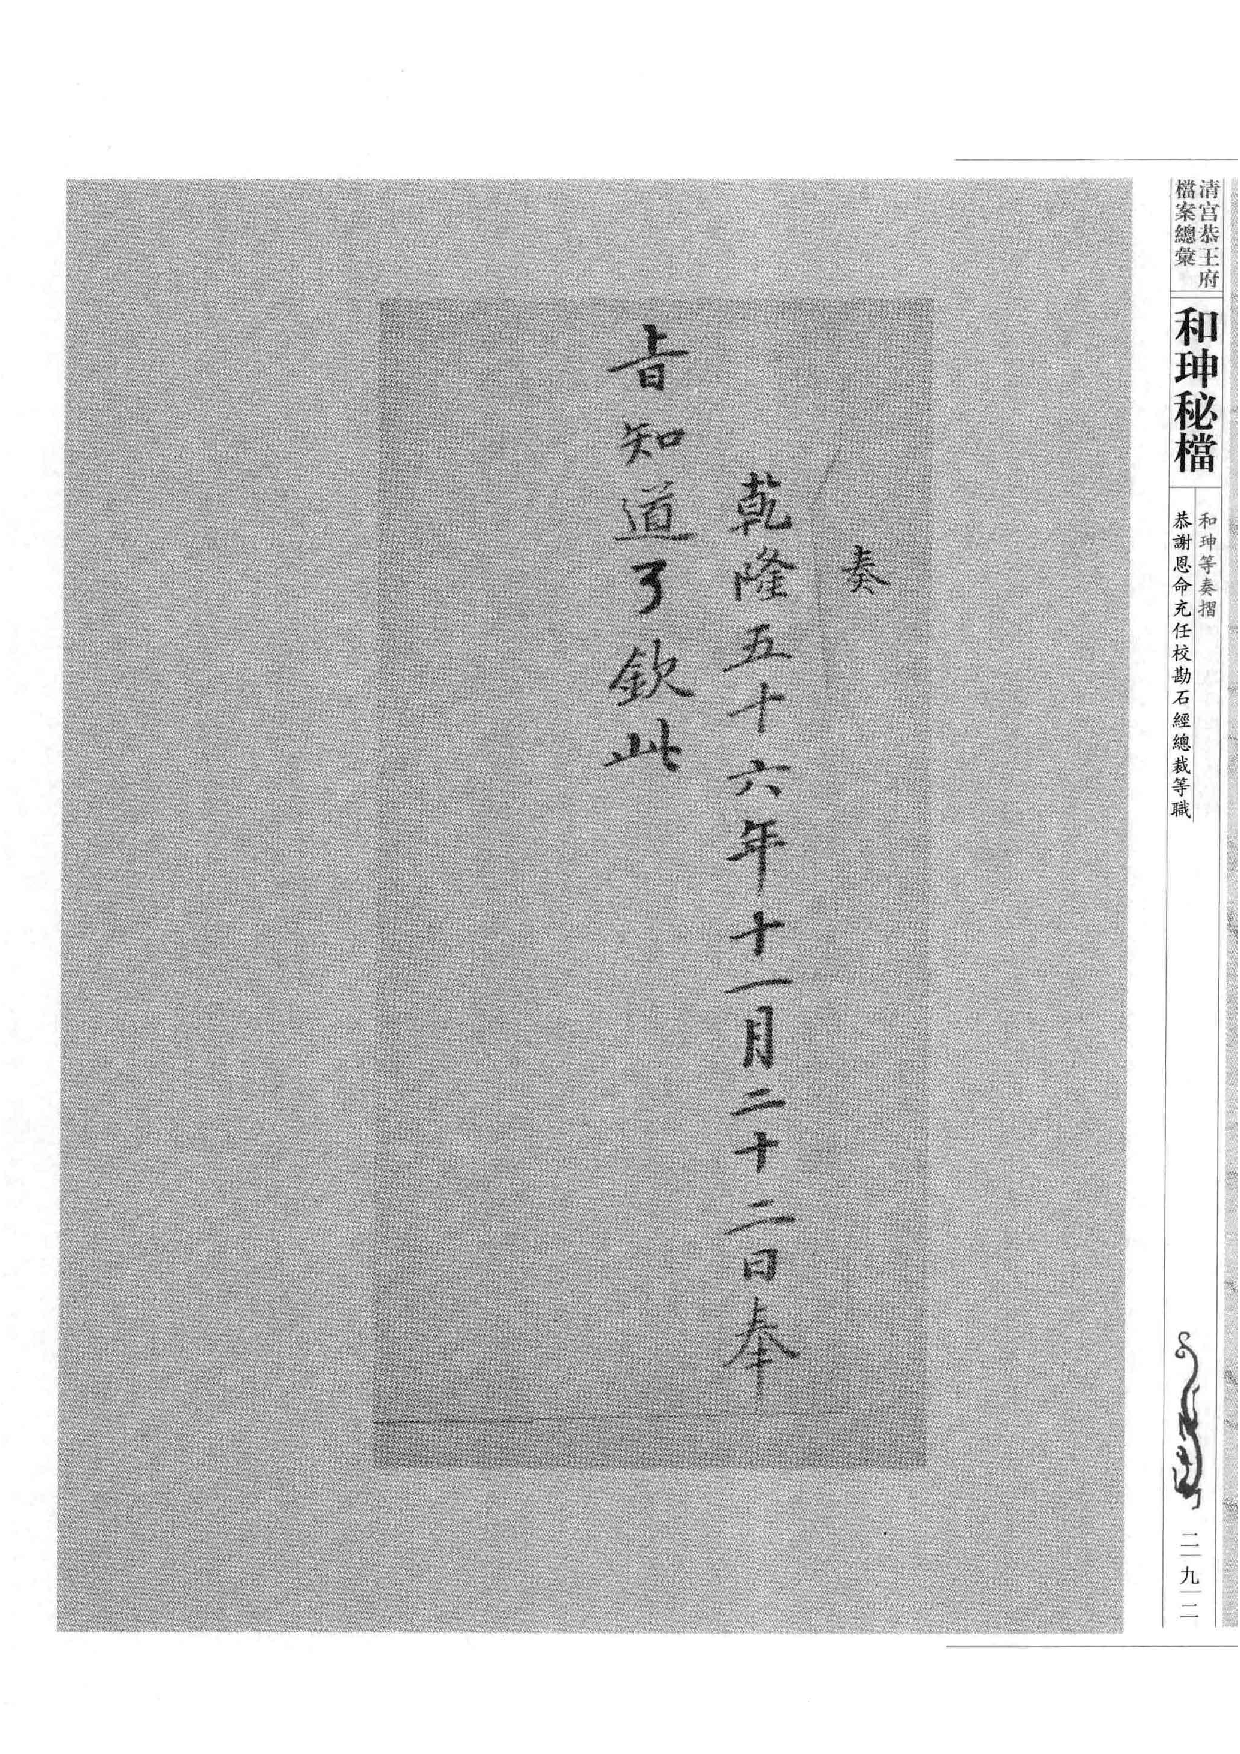 清宮恭王府
檔案總彙
和珅秘檔
和珅等奏摺
恭謝恩命充任校勘石經總裁等職
二九二
奏
乾隆五十六年十一月二十二日奉
旨知道了欽此